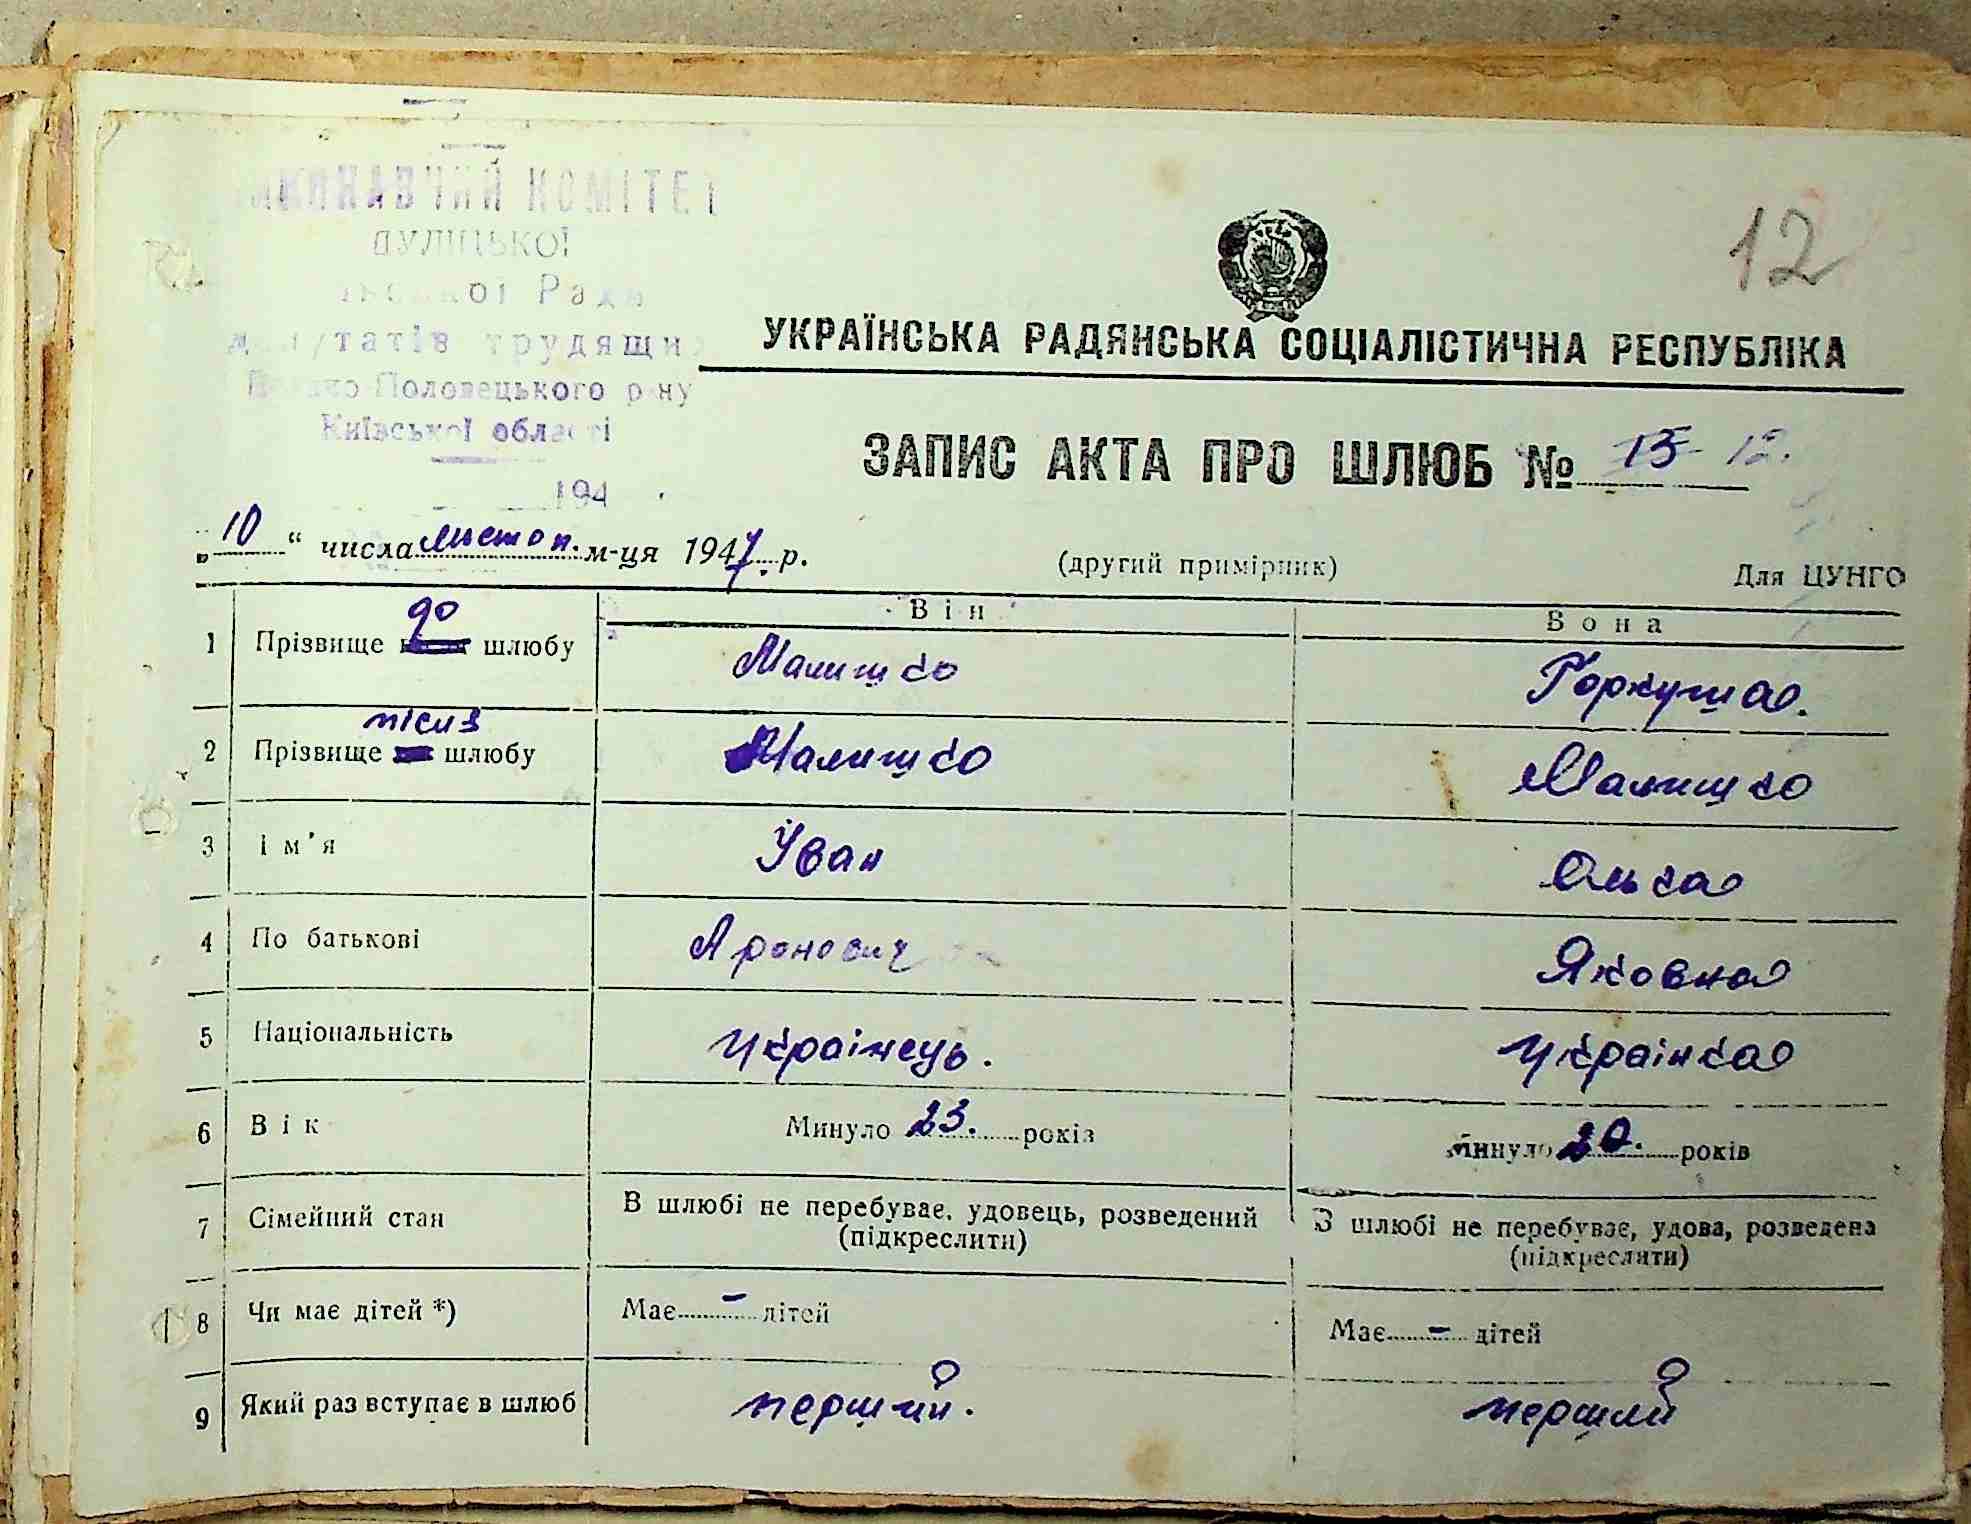 КОМІТЕТ
ПУЛІЦЬКОЇ
Рада
депутатів трудящих
Половецького р-ну
Київської області
194
12
УКРАЇНСЬКА РАДЯНСЬКА СОЦІАЛІСТИЧНА РЕСПУБЛІКА
ЗАПИС АКТА ПРО ШЛЮБ № 13 12.
„10“ числа листоп. м-ця 1947 р.
(другий примірник) Для ЦУНГО
Він Вона
1 Прізвище до шлюбу Малишко Горкуша.
2 Прізвище після шлюбу Малишко Малишко
3 Ім'я Іван Ольга
4 По батькові Аронович Яковна
5 Національність Українець. Українка
6 Вік Минуло 23. років Минуло 20. років
7 Сімейний стан В шлюбі не перебуває, удовець, розведений (підкреслити) В шлюбі не перебуває, удова, розведена (підкреслити)
8 Чи має дітей *) Має - дітей Має - дітей
9 Який раз вступає в шлюб перший. перший